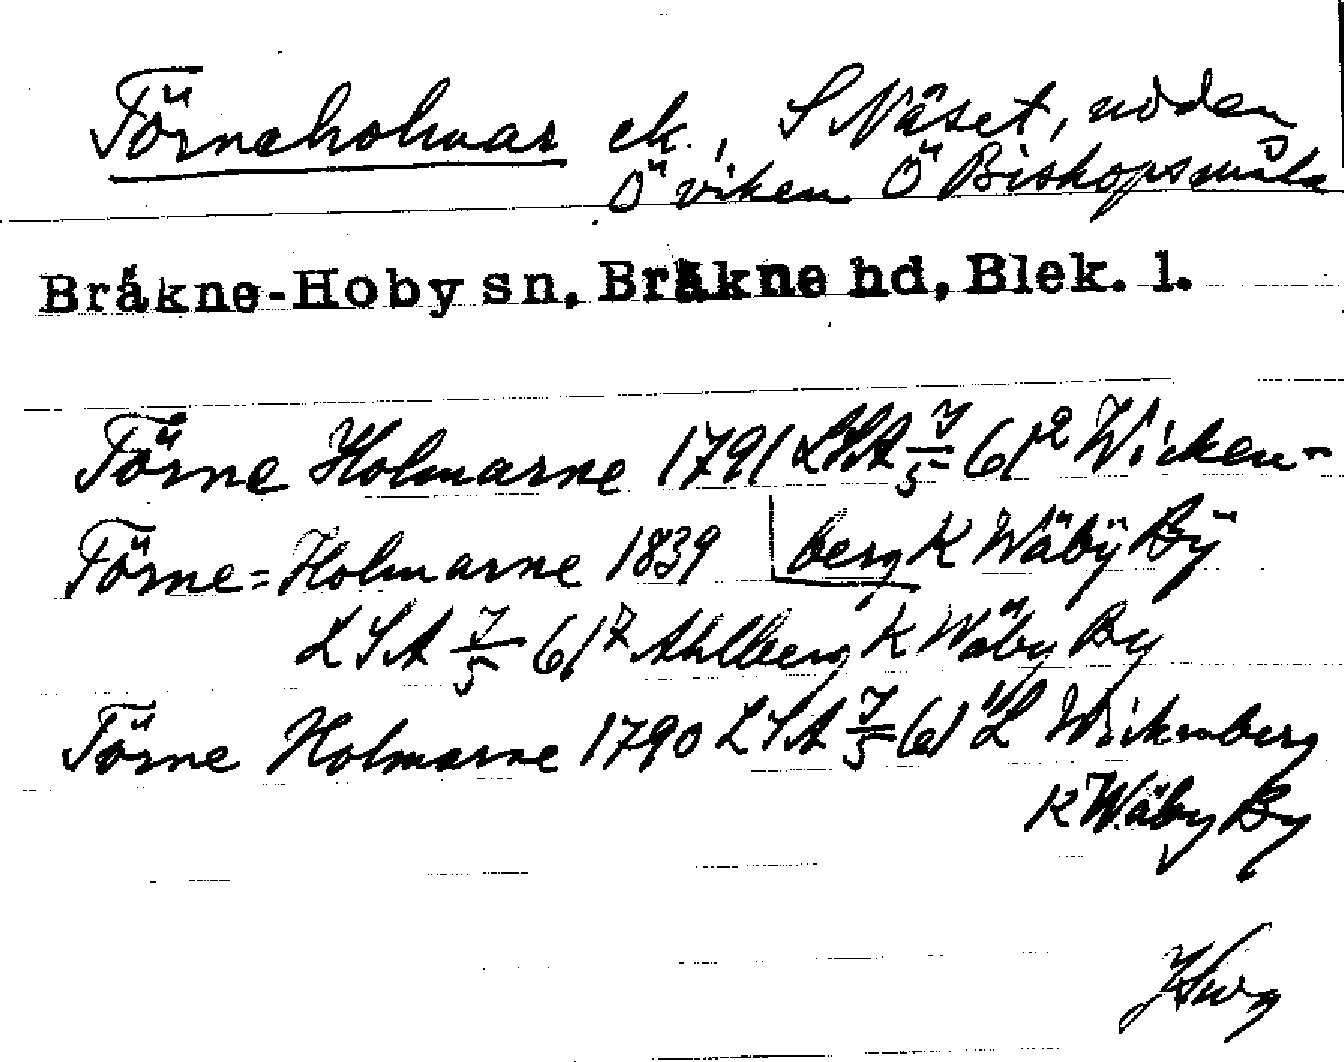 Törneholmar ek., S Näset, udden
Ö viken Ö Bishopsmåla
Bråkne-Hoby sn, Bråkne hd, Blek. l.
Törne Holmarne 1791 LSA 7/5 61² Wicken-
Törne=Holmarne 1839 berg K Wäbÿ Bÿ
LSA 7/5 61⁷ Ahlberg K Wäby By
Törne Holmarne 1790 LSA 7/5 61 Wikenberg
K Wäby By